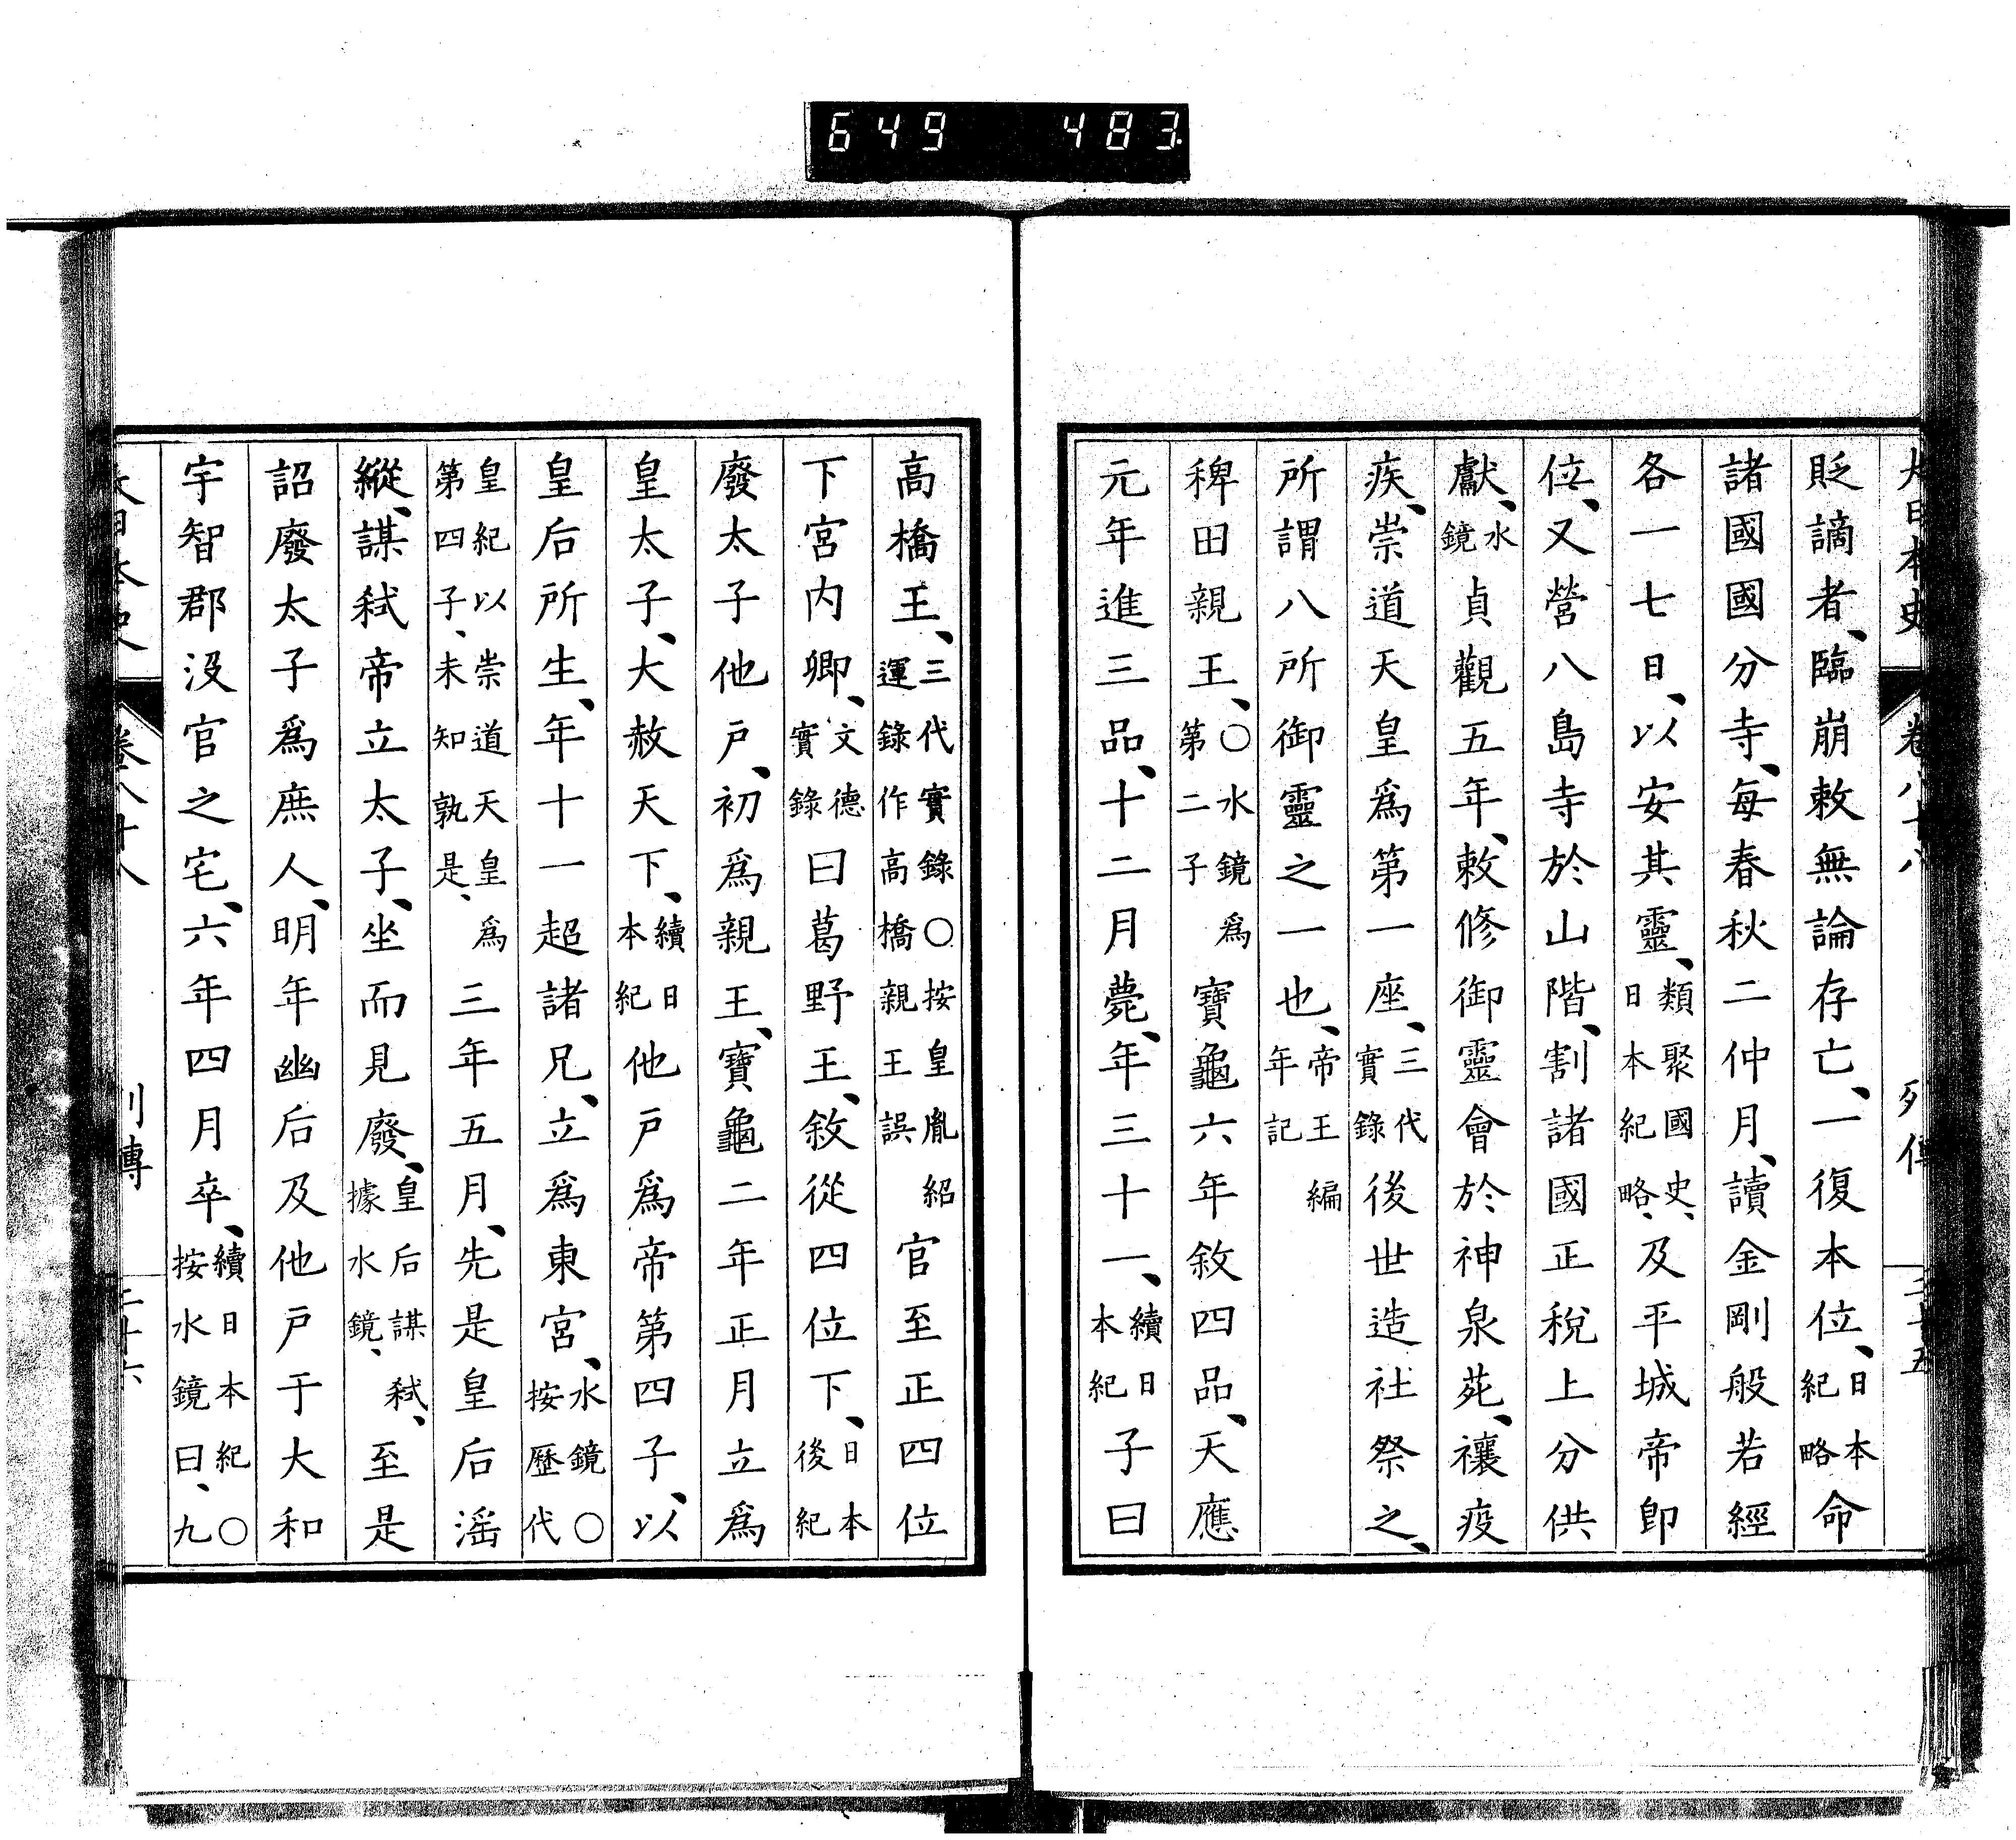 649 483.
大日本史 卷八十八 列傳 二十五
貶謫者、臨崩敕無論存亡、一復本位、日本紀略命
諸國國分寺、每春秋二仲月、讀金剛般若經
各一七日、以安其靈、類聚國史、日本紀略、及平城帝卽
位、又營八島寺於山階、割諸國正稅上分供
獻、水鏡貞觀五年、敕修御靈會於神泉苑、禳疫
疾、崇道天皇爲第一座、三代實錄後世造社祭之、
所謂八所御靈之一也、帝王編年記
稗田親王、〇水鏡爲第二子寶龜六年敘四品、天應
元年進三品、十二月薨、年三十一、續日本紀子曰
高橋王、三代實錄〇按皇胤紹運錄作高橋親王誤官至正四位
下宮內卿、文德實錄曰葛野王、敘從四位下、日本後紀
廢太子他戸、初爲親王、寶龜二年正月立爲
皇太子、大赦天下、續日本紀他戸爲帝第四子、以
皇后所生、年十一超諸兄、立爲東宮、水鏡〇按歷代
皇紀以崇道天皇爲第四子、未知孰是、三年五月、先是皇后滛
縱、謀弑帝立太子、坐而見廢、皇后謀弑、據水鏡、至是
詔廢太子爲庶人、明年幽后及他戸于大和
宇智郡沒官之宅、六年四月卒、續日本紀〇按水鏡曰、九
大日本史 卷八十八 列傳 二十六